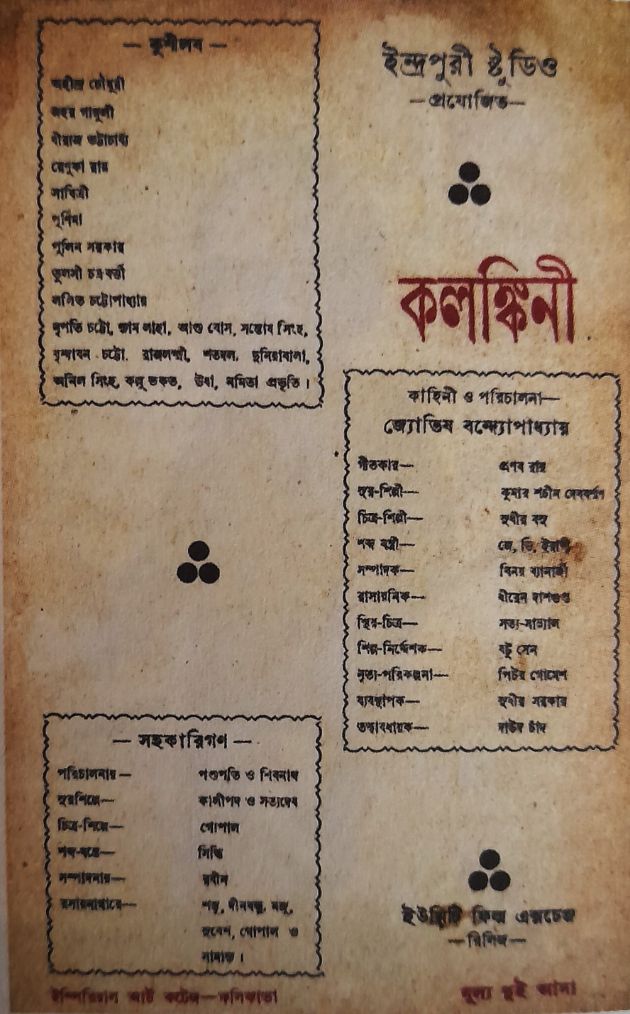 — কুশীলব —
অহীন্দ্র চৌধুরী
জহর গাঙ্গুলী
ধীরাজ ভট্টাচার্য্য
রেণুকা রায়
সাবিত্রী
পূর্ণিমা
পুলিন সরকার
তুলসী চক্রবর্ত্তী
ললিত চট্টোপাধ্যায়
নৃপতি চট্টো, শ্যাম লাহা, আশু বোস, সন্তোষ সিংহ,
বৃন্দাবন চট্টো, রাজলক্ষ্মী, শতদল, দুনিয়াবালা,
অনিল সিংহ, কল্লু ভকত, উষা, নমিতা প্রভৃতি ।
ইন্দ্রপুরী ষ্টুডিও
—প্রযোজিত—
কলঙ্কিনী
কাহিনী ও পরিচালনা—
জ্যোতিষ বন্দ্যোপাধ্যায়
গীতকার— প্রণব রায়
সুর-শিল্পী— কুমার শচীন দেববর্ম্মণ
চিত্র-শিল্পী— সুধীর বসু
শব্দ যন্ত্রী— জে, ডি, ইরাণী
সম্পাদক— বিনয় ব্যানার্জী
রাসায়নিক— ধীরেন দাশগুপ্ত
স্থির-চিত্র— সত্য-সান্ন্যাল
শিল্প-নির্দ্দেশক— বটু সেন
নৃত্য-পরিকল্পনা— পিটার গোমেশ
ব্যবস্থাপক— সুধীর সরকার
তত্ত্বাবধায়ক— দাউদ চাঁদ
— সহকারিগণ —
পরিচালনায়— পশুপতি ও শিবনাথ
সুরশিল্পে— কালীপদ ও সত্যদেব
চিত্র-শিল্পে— গোপাল
শব্দ-যন্ত্রে— সিদ্ধি
সম্পাদনায়— রবীন
রসায়নাগারে— শম্ভু, দীনবন্ধু, মজু,
সুরেশ, গোপাল ও
সামাদ ।
ইউনিটি ফিল্ম এক্সচেঞ্জ
—রিলিজ—
ইম্পিরিয়াল আর্ট কটেজ—কলিকাতা
মূল্য দুই আনা